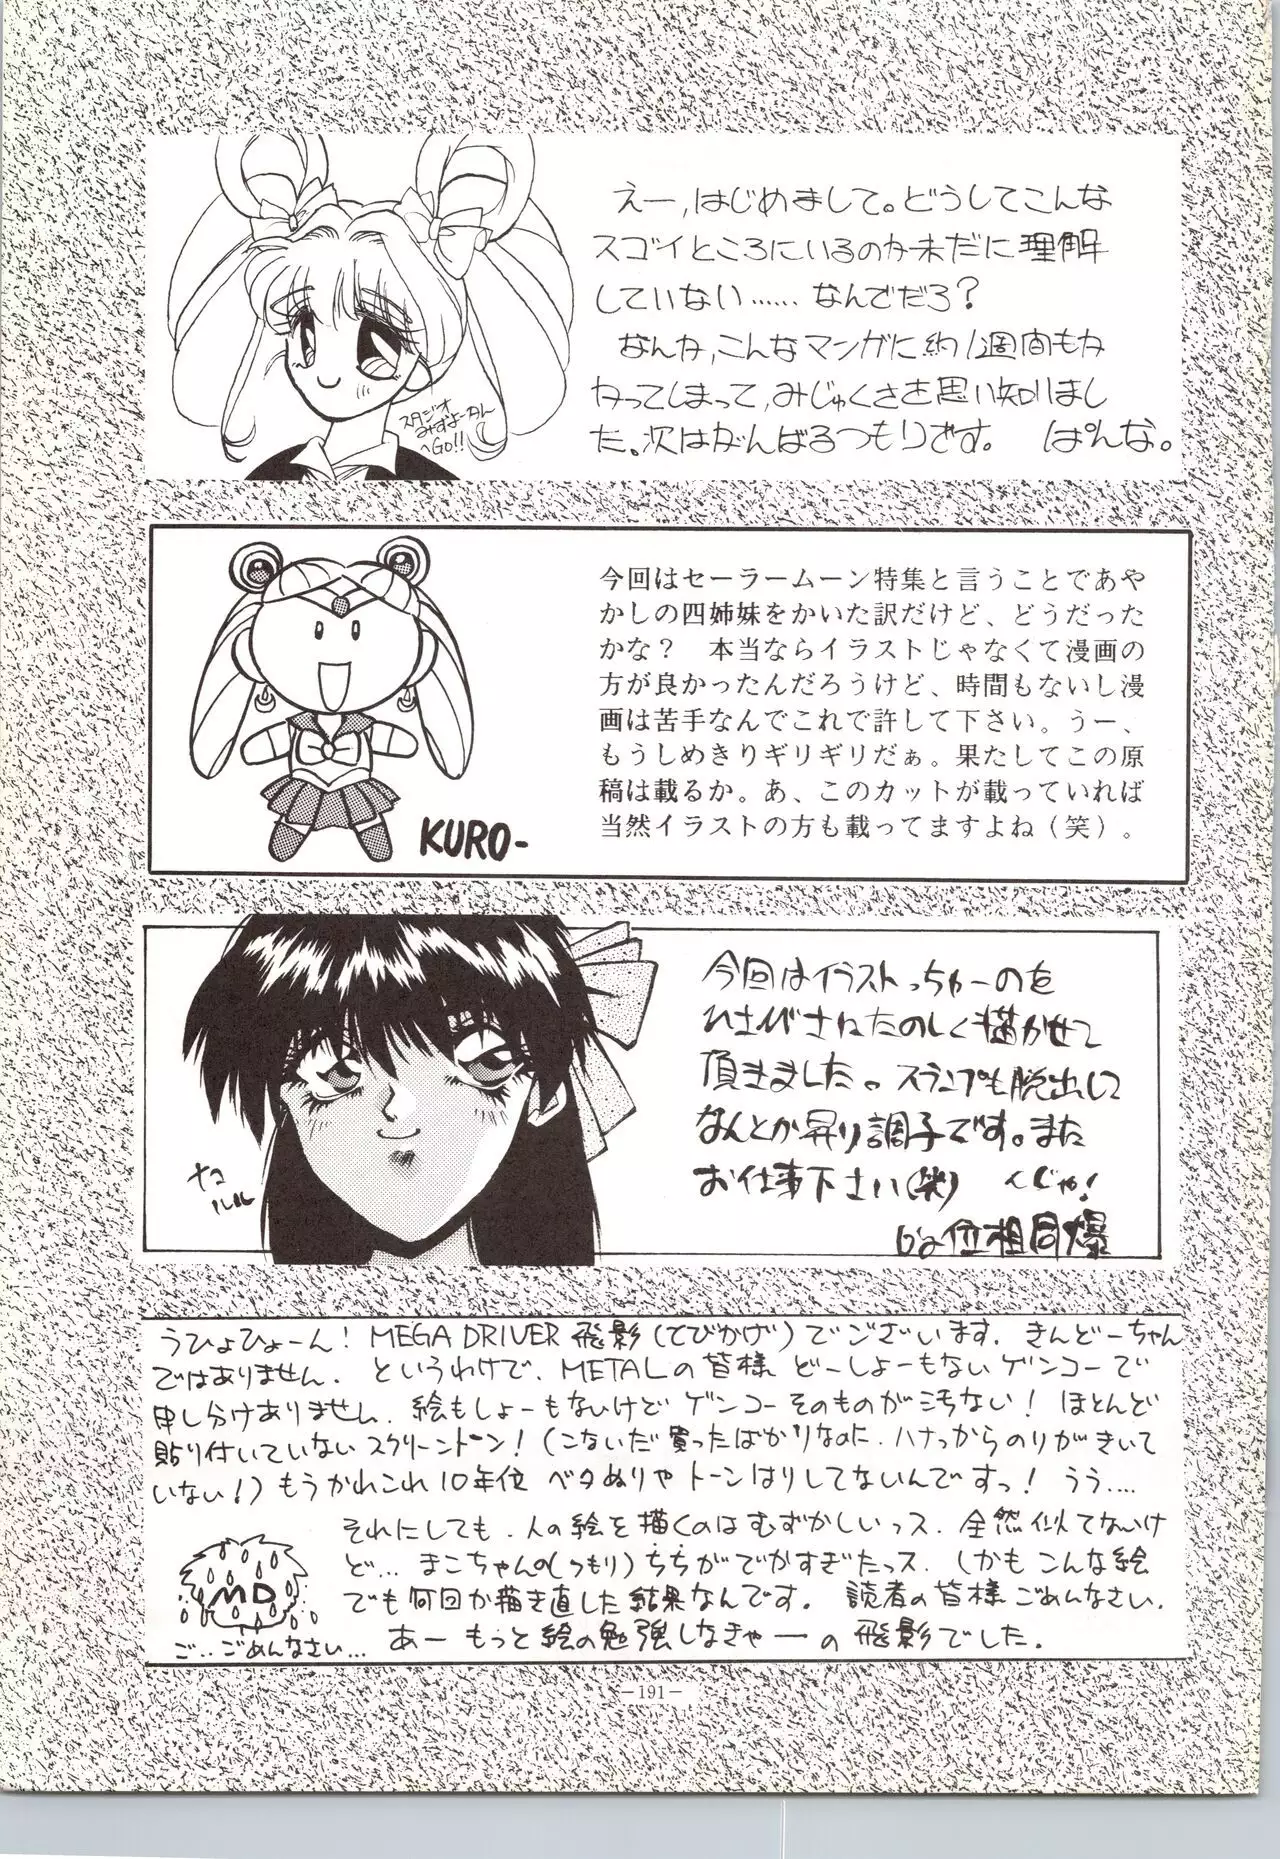 えー,はじめまして。どうしてこんな
スゴイところにいるのか未だに理解
していない……なんでだろ？
なんか,こんなマンガに約1週間もか
かってしまって,みじゅくさを思い知りまし
た。次はがんばるつもりです。 ぱんな。
スタジオ
みずよーかん
へGO!!
今回はセーラームーン特集と言うことであや
かしの四姉妹をかいた訳だけど、どうだった
かな？ 本当ならイラストじゃなくて漫画の
方が良かったんだろうけど、時間もないし漫
画は苦手なんでこれで許して下さい。うー、
もうしめきりギリギリだぁ。果たしてこの原
稿は載るか。あ、このカットが載っていれば
当然イラストの方も載ってますよね（笑）。
KURO-
今回はイラストっちゅーのを
ひさびさねたのしく描かせて
頂きました。スランプも脱出して
なんとか昇り調子です。また
お仕事下さい(笑) くじゃ!
位相同爆
ナコ
ルル
うひょひょーん! MEGA DRIVER 飛影(とびかげ)でございます. きんどーちゃん
ではありません. というわけで、METALの皆様 どーしょーもないゲンコーで
申し分けありません. 絵もしょーもないけど ゲンコーそのものが汚ない! ほとんど
貼り付いていないスクリーントーン!(こないだ買ったばかりなのに.ハナっからのりがきいて
いない!)もうかれこれ10年位 ベタぬりやトーンはりしてないんですっ! うう....
それにしても.人の絵を描くのはむずかしいっス. 全然似てないけ
ど... まこちゃんの(つもり)ちちがでかすぎたっス. しかもこんな絵
でも何回か描き直した結果なんです。 読者の皆様ごめんなさい.
あー もっと絵の勉強しなきゃー の 飛影でした.
MD
ご..ごめんなさい...
—191—